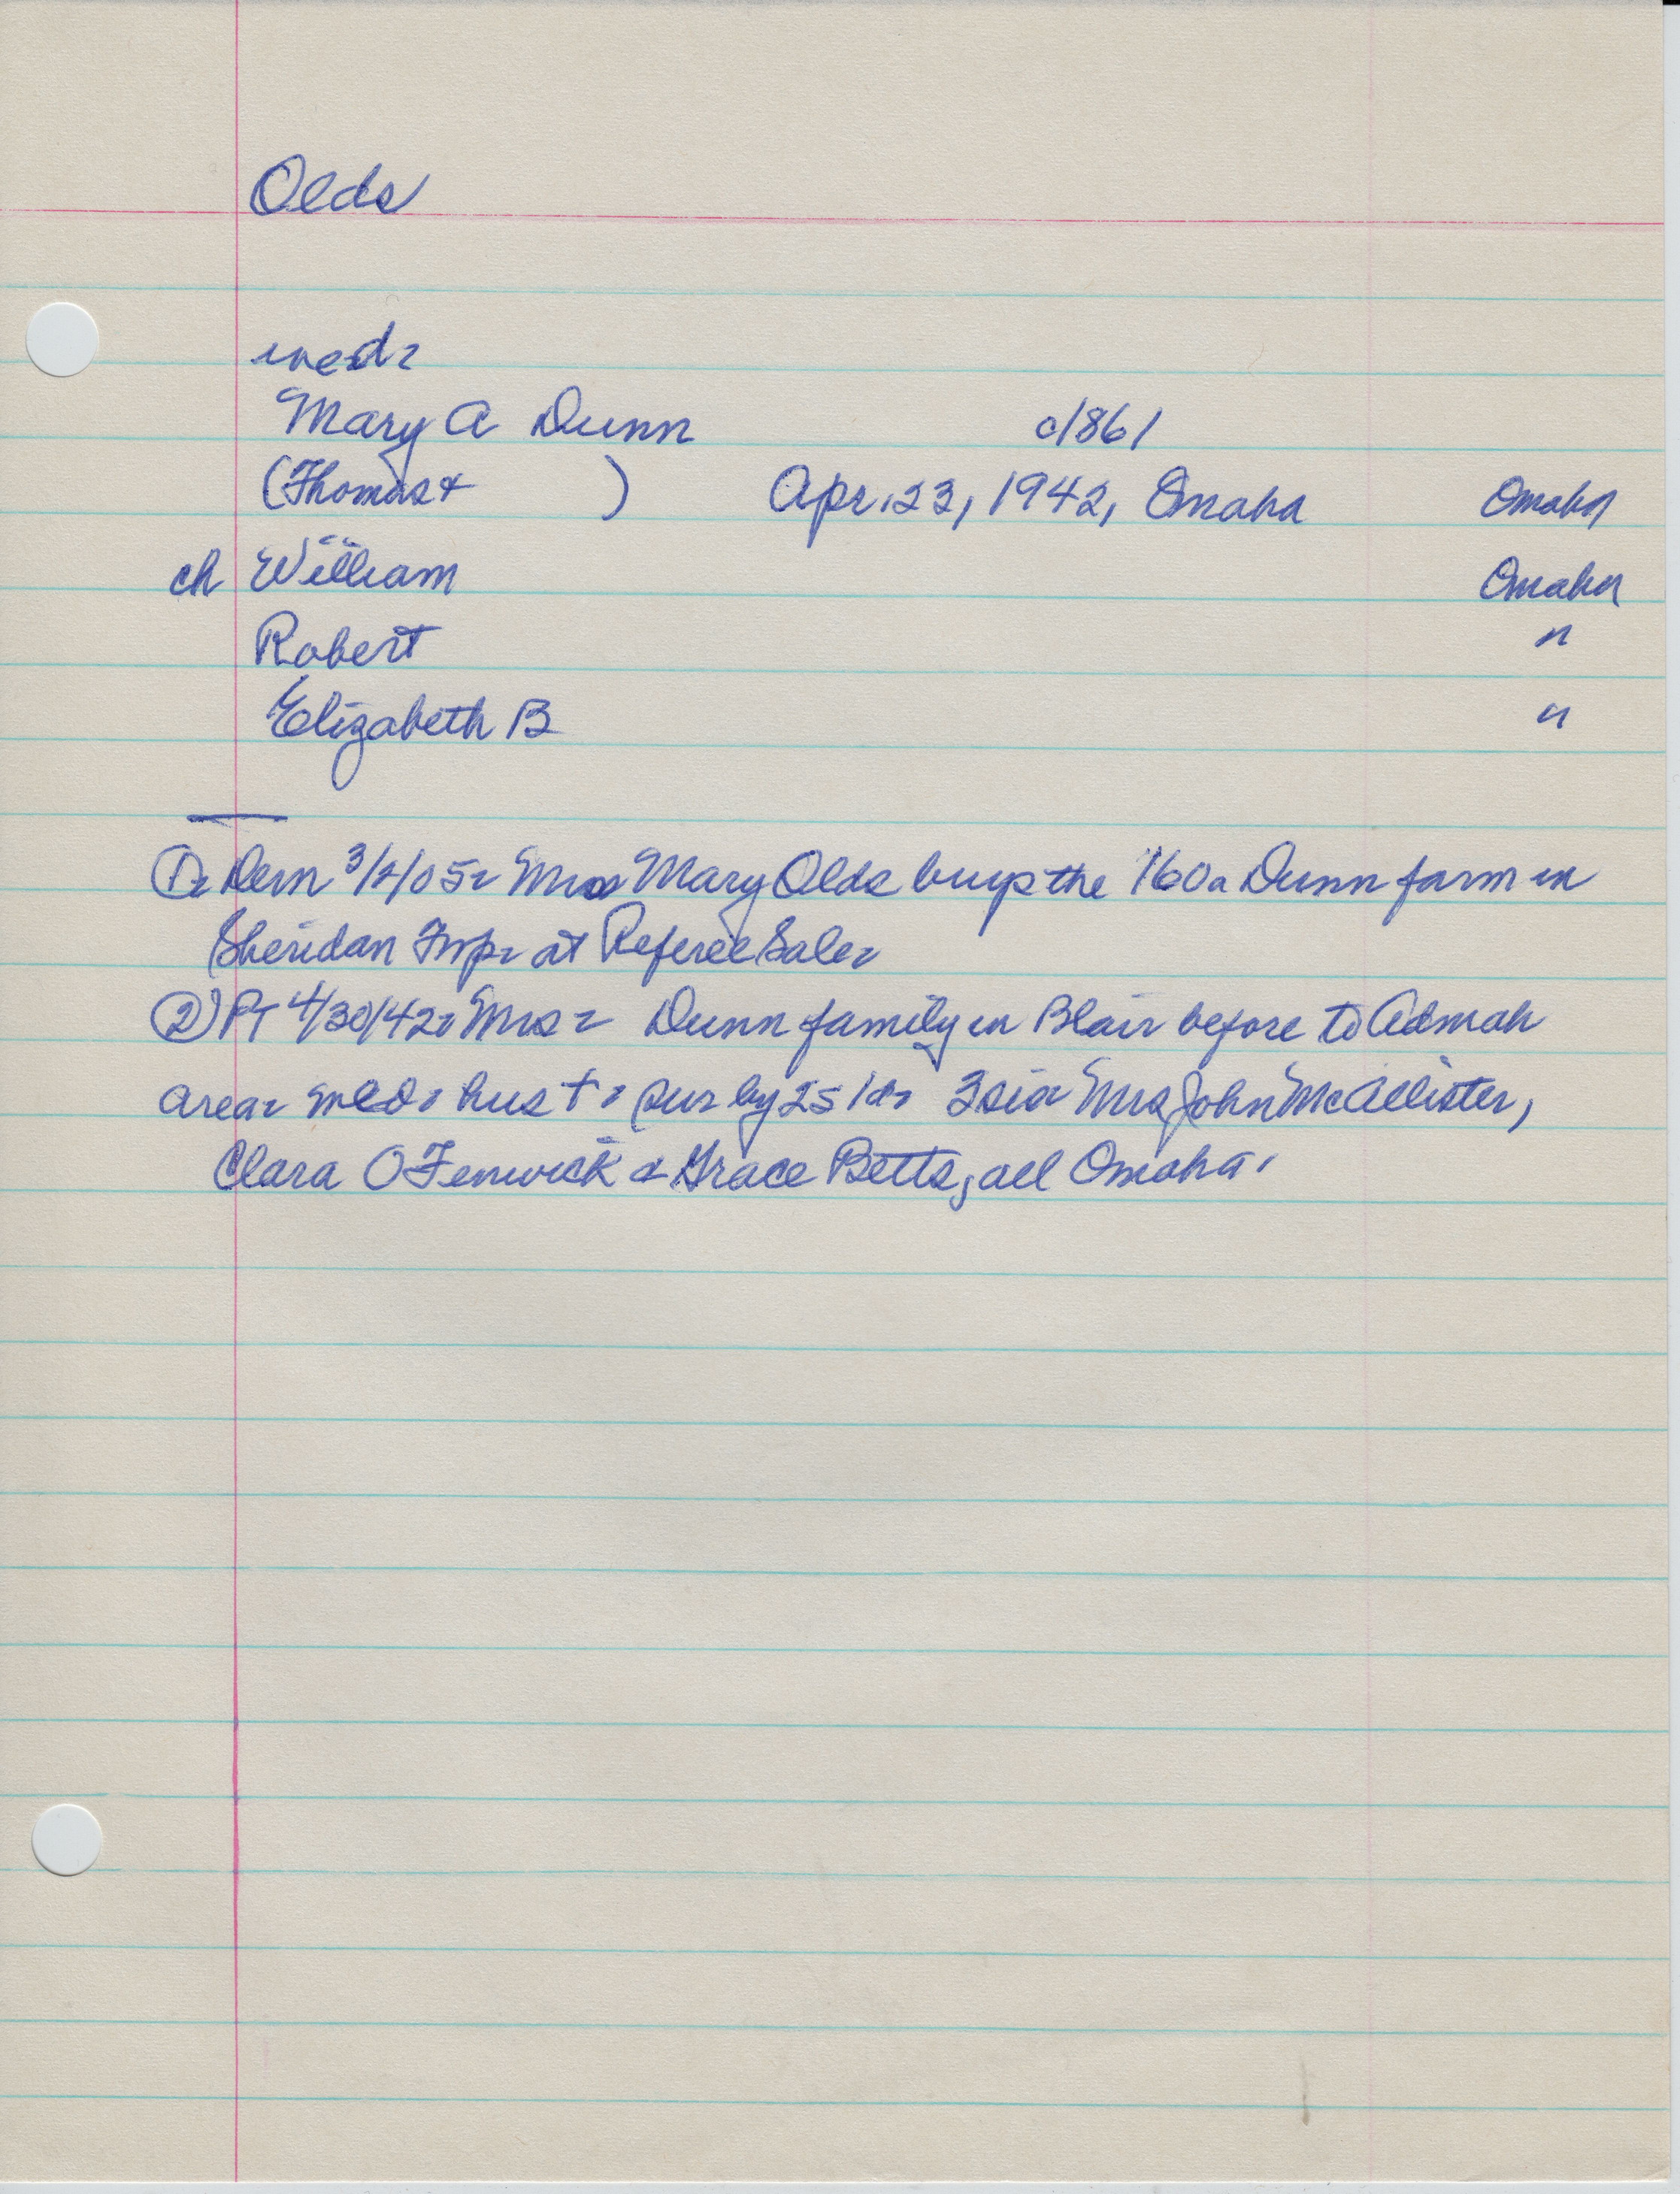 Olds
wed-
Mary A Dunn c1861
(Thomas & ) Apr. 23, 1942, Omaha Omaha
ch William Omaha
Robert "
Elizabeth B "
① - Dem 3/2/05 - Mrs Mary Olds buys the 160a Dunn farm in
Sheridan Twp - at Referee Sale -
② PT 4/30/42 - Mrs - Dunn family in Blair before to Admah
area - wed - hus † - sur by 2s 1d - 3 sis Mrs John McAllister,
Clara O Fenwick & Grace Betts, all Omaha.